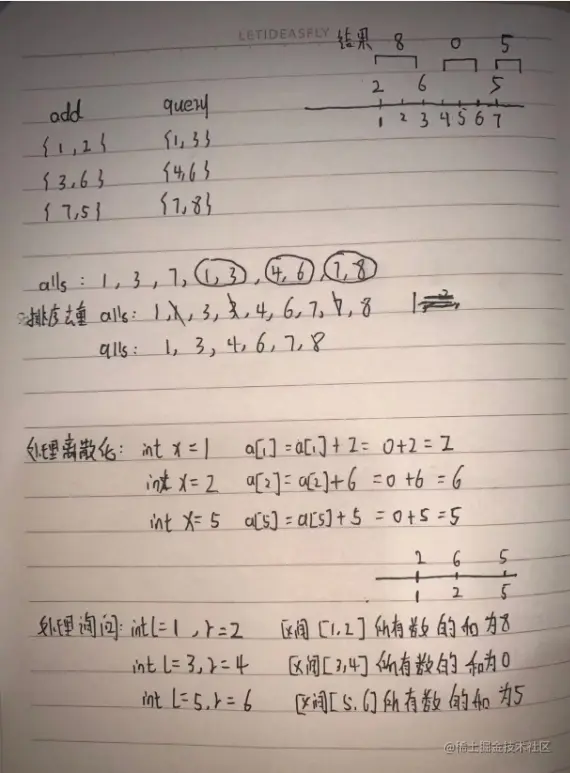 LETIDEASFLY
结果 8 0 5
2 6 5
1 2 3 4 5 6 7
add query
{1,2} {1,3}
{3,6} {4,6}
{7,5} {7,8}
alls: 1, 3, 7, 1,3, 4,6, 7,8
排序去重 alls: 1, 1, 3, 3, 4, 6, 7, 7, 8
alls: 1, 3, 4, 6, 7, 8
处理离散化: int x = 1 a[1] = a[1] + 2 = 0+2 = 2
int x = 2 a[2] = a[2]+6 = 0+6 = 6
int x = 5 a[5] = a[5]+5 = 0+5 = 5
2 6 5
1 2 5
处理询问: int l = 1, r = 2 区间 [1,2] 所有数的和为8
int l = 3, r = 4 区间[3,4] 所有数的和为0
int l = 5, r = 6 区间[5,6] 所有数的和为5
@稀土掘金技术社区